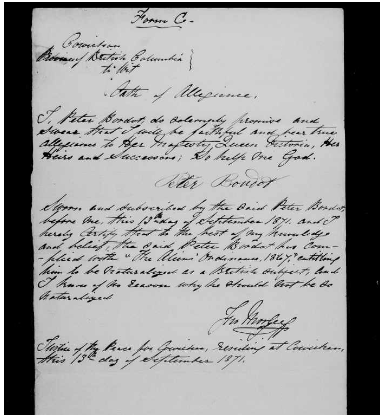 Form C.
Cowichan
Province of British Columbia
to Wit
Oath of Allegiance.
I, Peter Bondot, do solemnly promise and
Swear that I will be faithful and bear true
allegiance to Her Majesty, Queen Victoria, Her
Heirs and Successors; So help me God.
Peter Bondot
Sworn and subscribed by the said Peter Bondot,
before me, this 13th day of September 1871. and I
hereby Certify that to the best of my knowledge
and belief, the said, Peter Bondot has Com-
plied with "The Aliens Ordinance, 1867," entitling
him to be Naturalized as a British Subject, and
I know of no reason why he should not be so
Naturalized
Jno Morley
Justice of the Peace for Cowichan, residing at Cowichan,
this 13th day of September 1871.